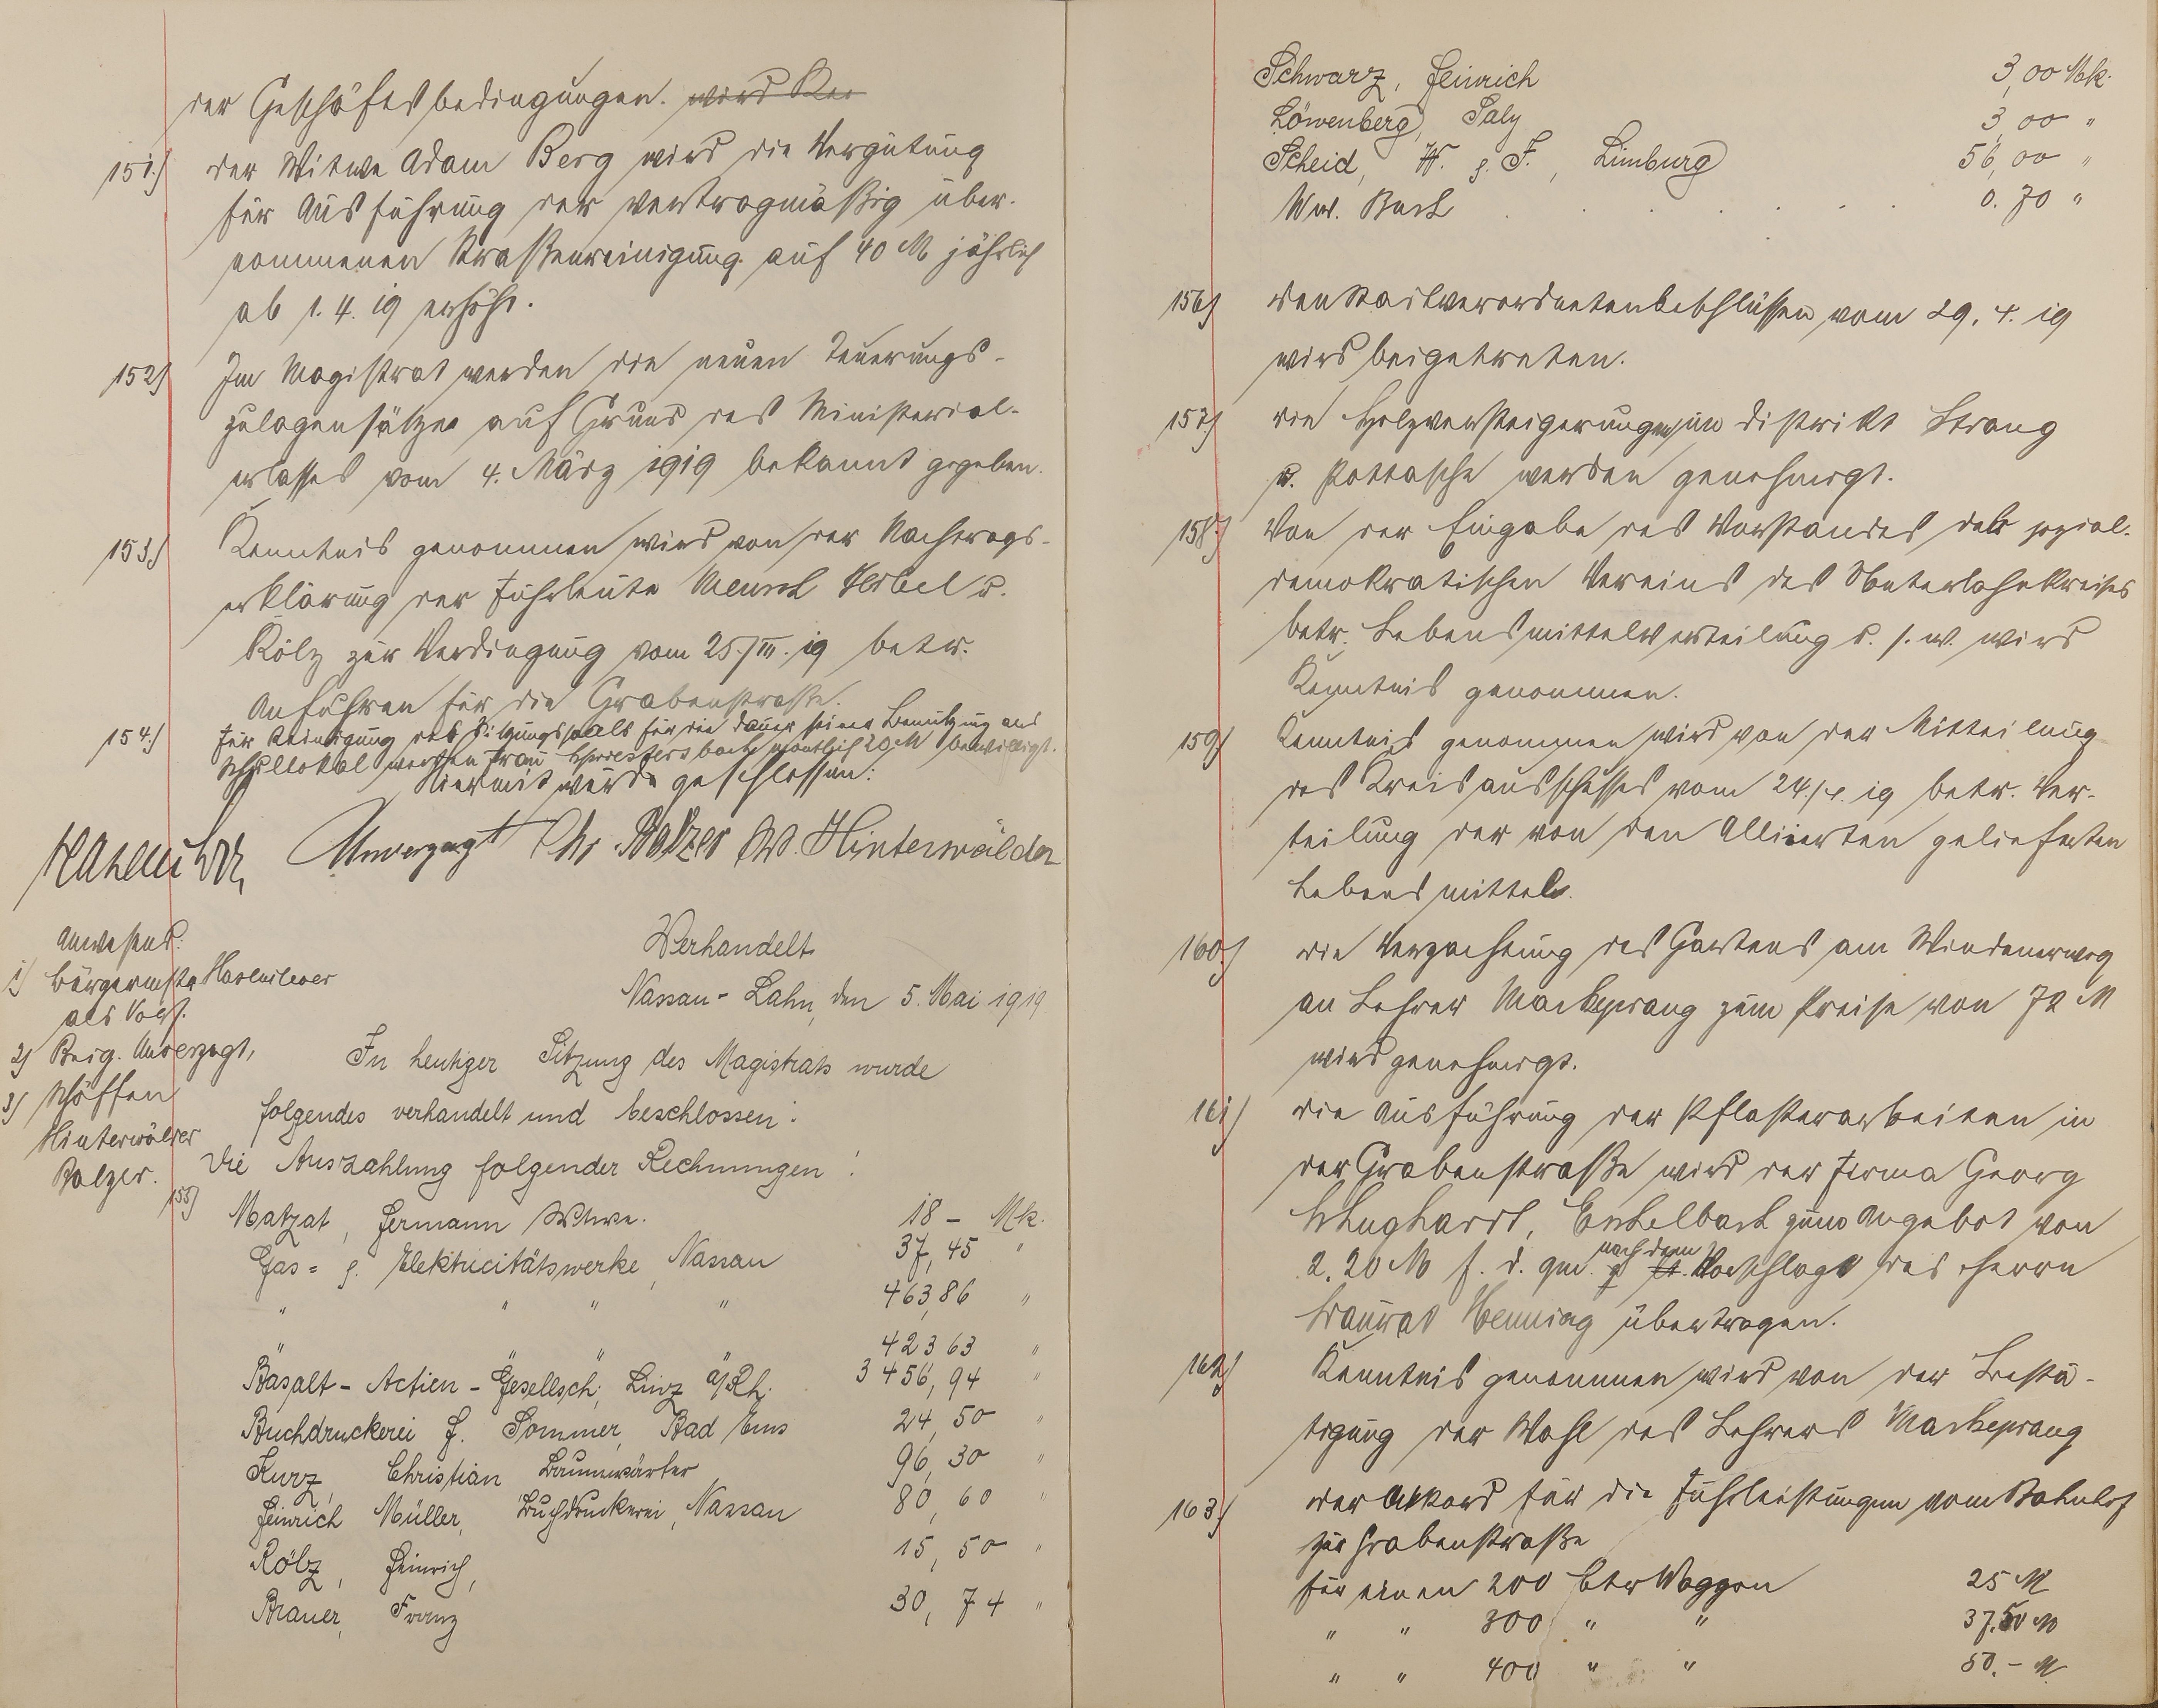 der Geschäftsbedingungen. wird Ken
151.) Der Witwe Adam Berg wird die Vergütung
für Ausführung der vertragmäßig über-
nommenen Straßenreinigung auf 40 M jährlich
ab 1. 4. 19 erhöht.
152) Im Magistrat werden die neuen Teuerungs-
zulagensätze auf Grund des Ministerial-
erlasses vom 4. März 1919 bekannt gegeben.
153.) Kenntnis genommen wird von der Nachtrags-
erklärung der Fuhrleute Mensch Herbel u.
Kölz zur Verdingung vom 25./III. 19 betr.
Anfuhren für die Grabenstraße.
154.) Für Reinigung des Sitzungssaals für die Dauer seiner Benutzung als
Schullokal werden Frau monatlich 20 M bewilligt.
Hiermit wurde geschlossen:
Hasenclever Unverzagt Chr. Balzer W. Hinterwälder
Anwesend:
1) Bürgermstr Hasenclever
als Vors.
2) Beig. Unverzagt,
3) Schöffen
Hinterwälder
Balzer.
Verhandelt
Nassau-Lahn, den 5. Mai 1919
In heutiger Sitzung des Magistrats wurde
folgendes verhandelt und beschlossen:
Die Auszahlung folgender Rechnungen:
155) Matzat, Hermann Wtwe. 18 – Mk.
Gas = u. Elektricitätswerke, Nassau 37,45 "
" " " " 463,86 "
" " " " 423 63 "
Basalt-Actien-Gesellsch, Linz a/Rh. 3456,94 "
Buchdruckerei H. Sommer, Bad Ems 24,50 "
Kurz, Christian Baumwärter 96,30 "
Heinrich Müller, Buchdruckerei, Nassau 80,60 "
Kölz, Heinrich, 15,50 "
Brauer, Franz 30,74 "
Schwarz, Heinrich 3,00 Mk.
Löwenberg, Saly 3,00 "
Scheid, W. u. F., Limburg 56,00 "
Ww. Busch . . . . . . 0.70 "
156) Den Stadtverordnetenbeschlüssen vom 29. 4. 19
wird beigetreten.
157) Die Holzversteigerungen im Distrikt Strang
u. Pottasche werden genehmigt.
158) Von der Eingabe des Vorstandes des sozial-
demokratischen Vereins des Unterlahnkreises
betr. Lebensmittelverteilung u. s. w. wird
Kenntnis genommen.
159) Kenntnis genommen wird von der Mitteilung
des Kreisausschusses vom 24./4. 19 betr. Ver-
teilung der von den Alliierten gelieferten
Lebensmittel.
160.) Die Verpachtung des Gartens am Windenerweg
an Lehrer Mackeprang zum Preise von 72 M
wird genehmigt.
161) Die Ausführung der Pflasterarbeiten in
der Grabenstraße wird der Firma Georg
Eschelbach zum Angebot von
2,20 M f. d. qm. nach dem Vorschlage des Herrn
Baurat Henning übertragen.
162) Kenntnis genommen wird von der Bestä-
tigung der Wahl des Lehrers Mackeprang
163) Der Akkord für die Fuhrleistungen vom Bahnhof
zur Grabenstraße
für einen 200 Ctr Waggon 25 M
" " 300 " " 37,50 M
" " 400 " " 50.– M